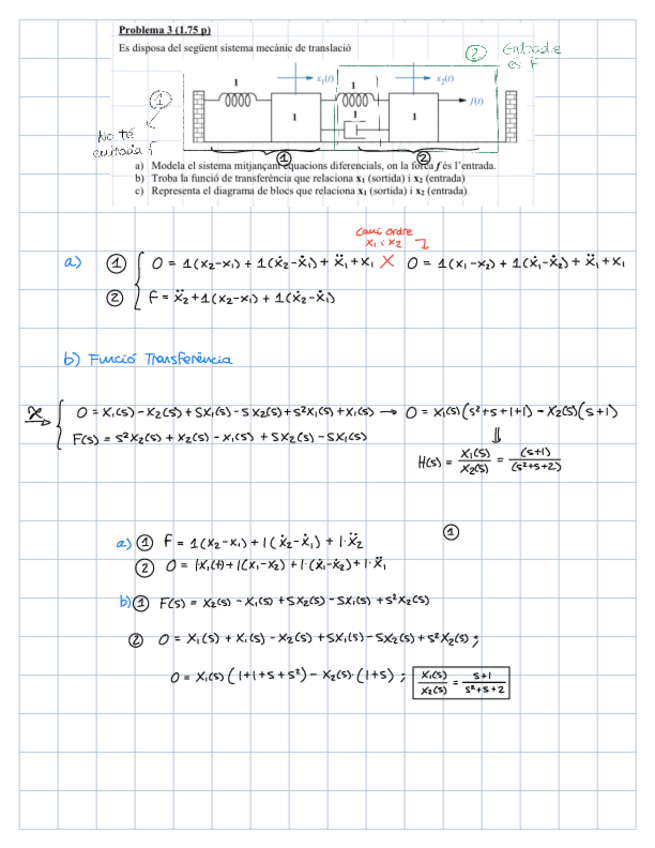 Problema 3 (1.75 p)
Es disposa del següent sistema mecànic de translació
② Entrada
es F
1
x₁(t)
1
x₂(t)
①
1
1
f(t)
No té
entrada f
① ②
a) Modela el sistema mitjançant equacions diferencials, on la força f és l'entrada.
b) Troba la funció de transferència que relaciona x₁ (sortida) i x₂ (entrada)
c) Representa el diagrama de blocs que relaciona x₁ (sortida) i x₂ (entrada).
Canvi ordre
x₁ i x₂
a) ① 0 = 1(x₂-x₁) + 1(ẋ₂-ẋ₁) + ẍ₁ + x₁ X 0 = 1(x₁-x₂) + 1(ẋ₁-ẋ₂) + ẍ₁ + x₁
② F = ẍ₂ + 1(x₂-x₁) + 1(ẋ₂-ẋ₁)
b) Funció Transferència
0 = X₁(s) - X₂(s) + SX₁(s) - SX₂(s) + S²X₁(s) + X₁(s) → 0 = X₁(s)(S²+S+1+1) - X₂(s)(S+1)
F(s) = S²X₂(s) + X₂(s) - X₁(s) + SX₂(s) - SX₁(s)
⇓
H(s) = X₁(s)/X₂(s) = (S+1)/(S²+S+2)
①
a) ① F = 1(x₂-x₁) + 1(ẋ₂-ẋ₁) + 1·ẍ₂
② 0 = 1x₁(t) + 1(x₁-x₂) + 1·(ẋ₁-ẋ₂) + 1·ẍ₁
b) ① F(s) = X₂(s) - X₁(s) + SX₂(s) - SX₁(s) + S²X₂(s)
② 0 = X₁(s) + X₁(s) - X₂(s) + SX₁(s) - SX₂(s) + S²X₂(s) ;
0 = X₁(s)(1+1+S+S²) - X₂(s)·(1+S) ; X₁(s)/X₂(s) = S+1/S²+S+2